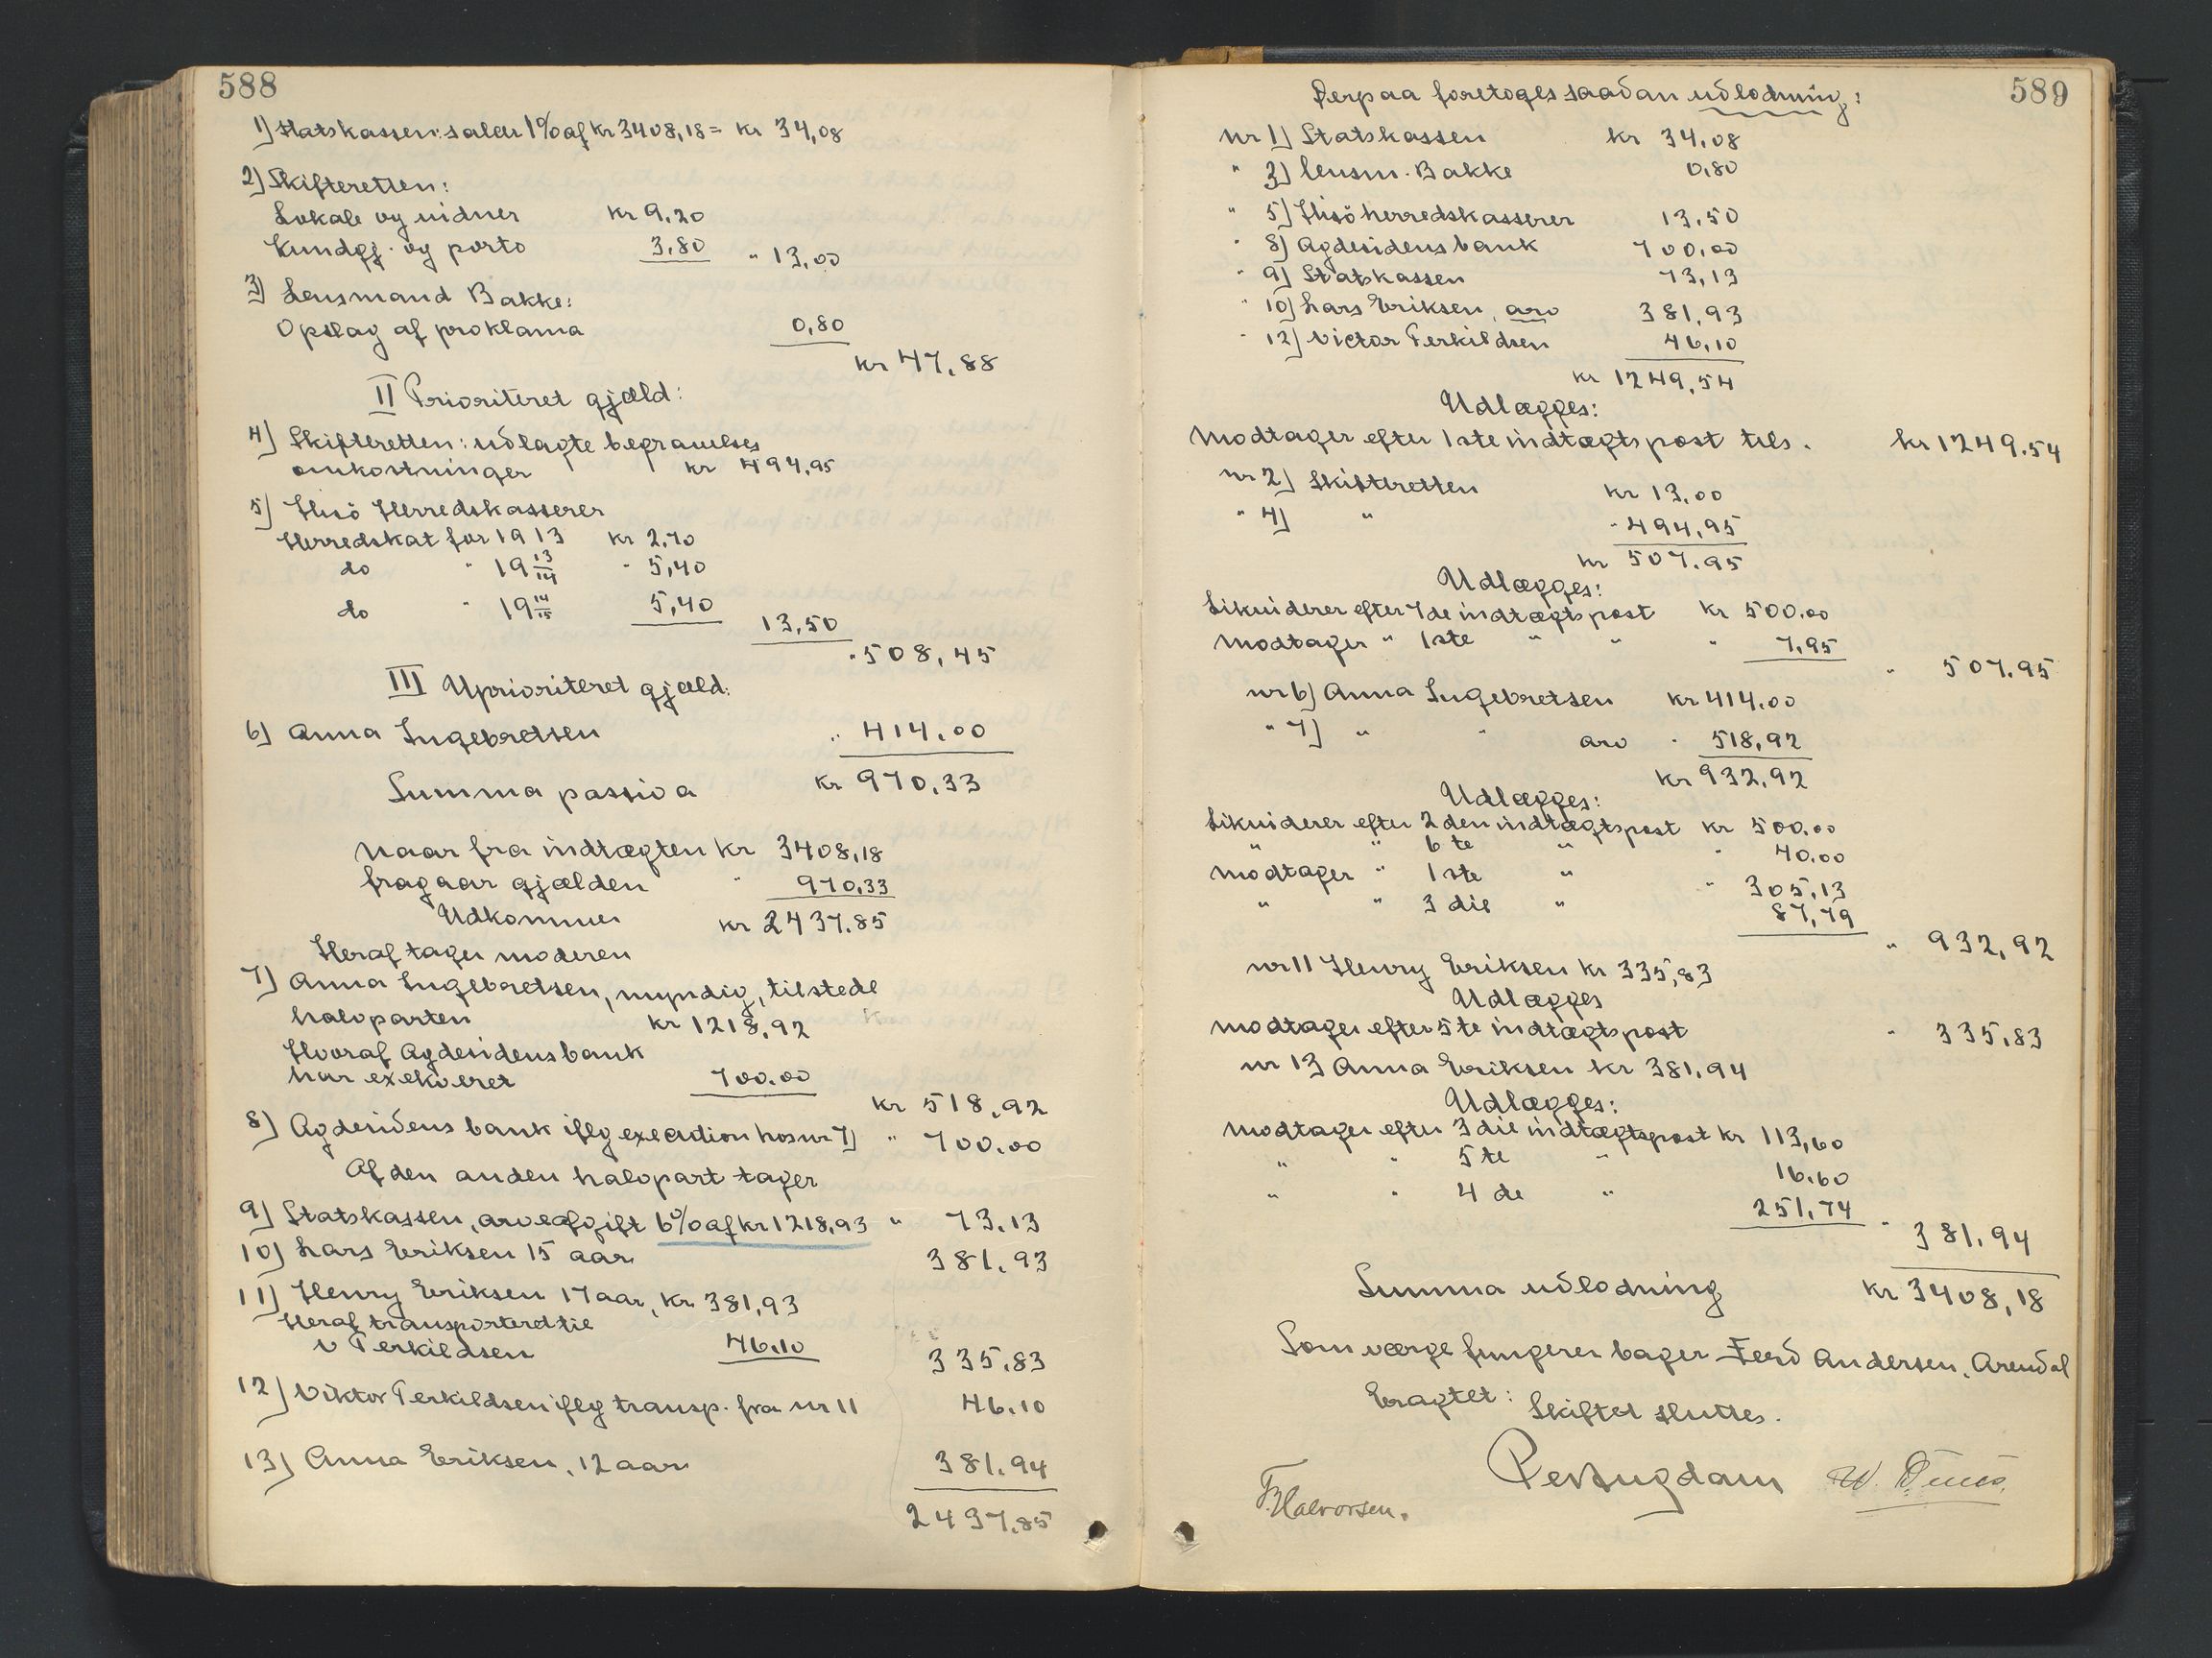 588
1) Statskassen: salær 1% af kr 3408,18 = kr 34,08
2) Skifteretten:
Lokale og vidner kr 9,20
Kundgj. og porto 3,80 " 13,00
3) Lensmand Bakke:
Opslag af proklama 0,80
kr 47,88
II Prioriteret gjæld:
4) Skifteretten: udlagte begravelses
omkostninger kr 494,95
5) Hisö Herredskasserer
Herredskat for 1913 kr 2,70
do " 19 13/14 " 5,40
do " 19 14/15 5,40
13,50
" 508,45
III Uprioriteret gjæld:
6) Anna Ingebretsen " 414.00
Summa passiva kr 970,33
Naar fra indtægten kr 3408,18
fragaar gjælden " 970,33
Udkommer kr 2437.85
Heraf tager moderen
7) Anna Ingebretsen, myndig, tilstede
halvparten kr 1218,92
Hvoraf Agdesidens bank
har exekveret 700.00
kr 518,92
8) Agdesidens bank iflg execution hos nr 7) " 700.00
Af den anden halvpart tager
9) Statskassen, arveafgift 6% af kr 1218,93 " 73.13
10) Lars Eriksen 15 aar 381,93
11) Henry Eriksen 17 aar, kr 381,93
Heraf transporteret til
V Terkildsen 46.10
335,83
12) Viktor Terkildsen iflg transp. fra nr 11 46.10
13) Anna Eriksen, 12 aar 381.94
2437.85
589
Derpaa foretoges saadan udlodning:
nr 1) Statskassen kr 34,08
" 3) lensm. Bakke 0,80
" 5) Hisö herredskasserer 13,50
" 8) Agdesidens bank 700,00
" 9) Statskassen 73,13
" 10) Lars Eriksen, arv 381,93
" 12) Victor Terkildsen 46,10
kr 1249,54
Udlægges:
Modtager efter 1ste indtægtspost tils. kr 1249.54
nr 2) Skifteretten kr 13,00
" 4) " " 494,95
kr 507.95
Udlægges:
Likviderer efter 7de indtægtspost kr 500.00
Modtager " 1ste " " " 7,95
" 507.95
nr 6) Anna Ingebretsen kr 414.00
" 7) " " arv " 518,92
kr 932,92
Udlægges:
Likviderer efter 2den indtægtspost kr 500.00
" " 6te " " 40.00
Modtager " 1ste " " 305,13
" " 3die " 87,79
" 932,92
nr 11 Henry Eriksen kr 335,83
Udlægges
Modtager efter 5te indtægtspost " 335,83
nr 13 Anna Eriksen kr 381,94
Udlægges:
Modtager efter 3die indtægtspost kr 113,60
" " 5te " 16.60
" " 4de " 251,74
" 381,94
Summa udlodning kr 3408,18
Som værge fungerer bager Ferd Andersen, Arendal
Eragtet: Skiftet sluttes.
W.
Halvorsen.